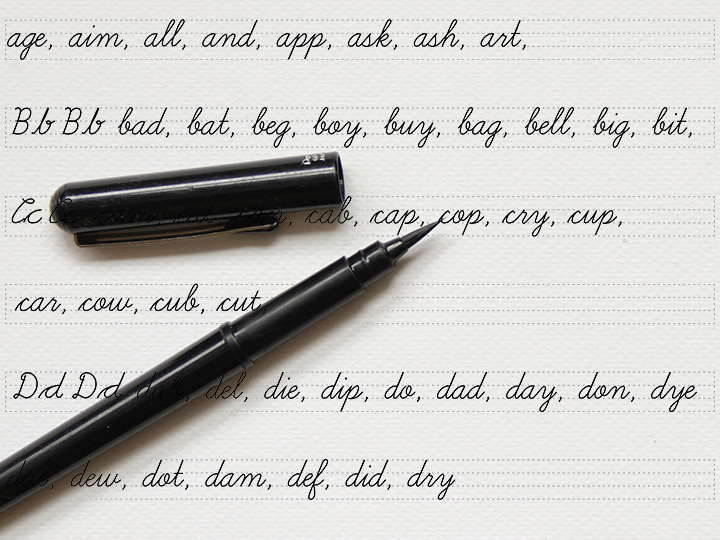 age, aim, all, and, app, ask, ash, art,
Bb Bb bad, bat, beg, boy, buy, bag, bell, big, bit,
Cc Cc cab, cap, cop, cry, cup,
car, cow, cub, cut,
Dd Dd del, die, dip, do, dad, day, don, dye
dew, dot, dam, def, did, dry